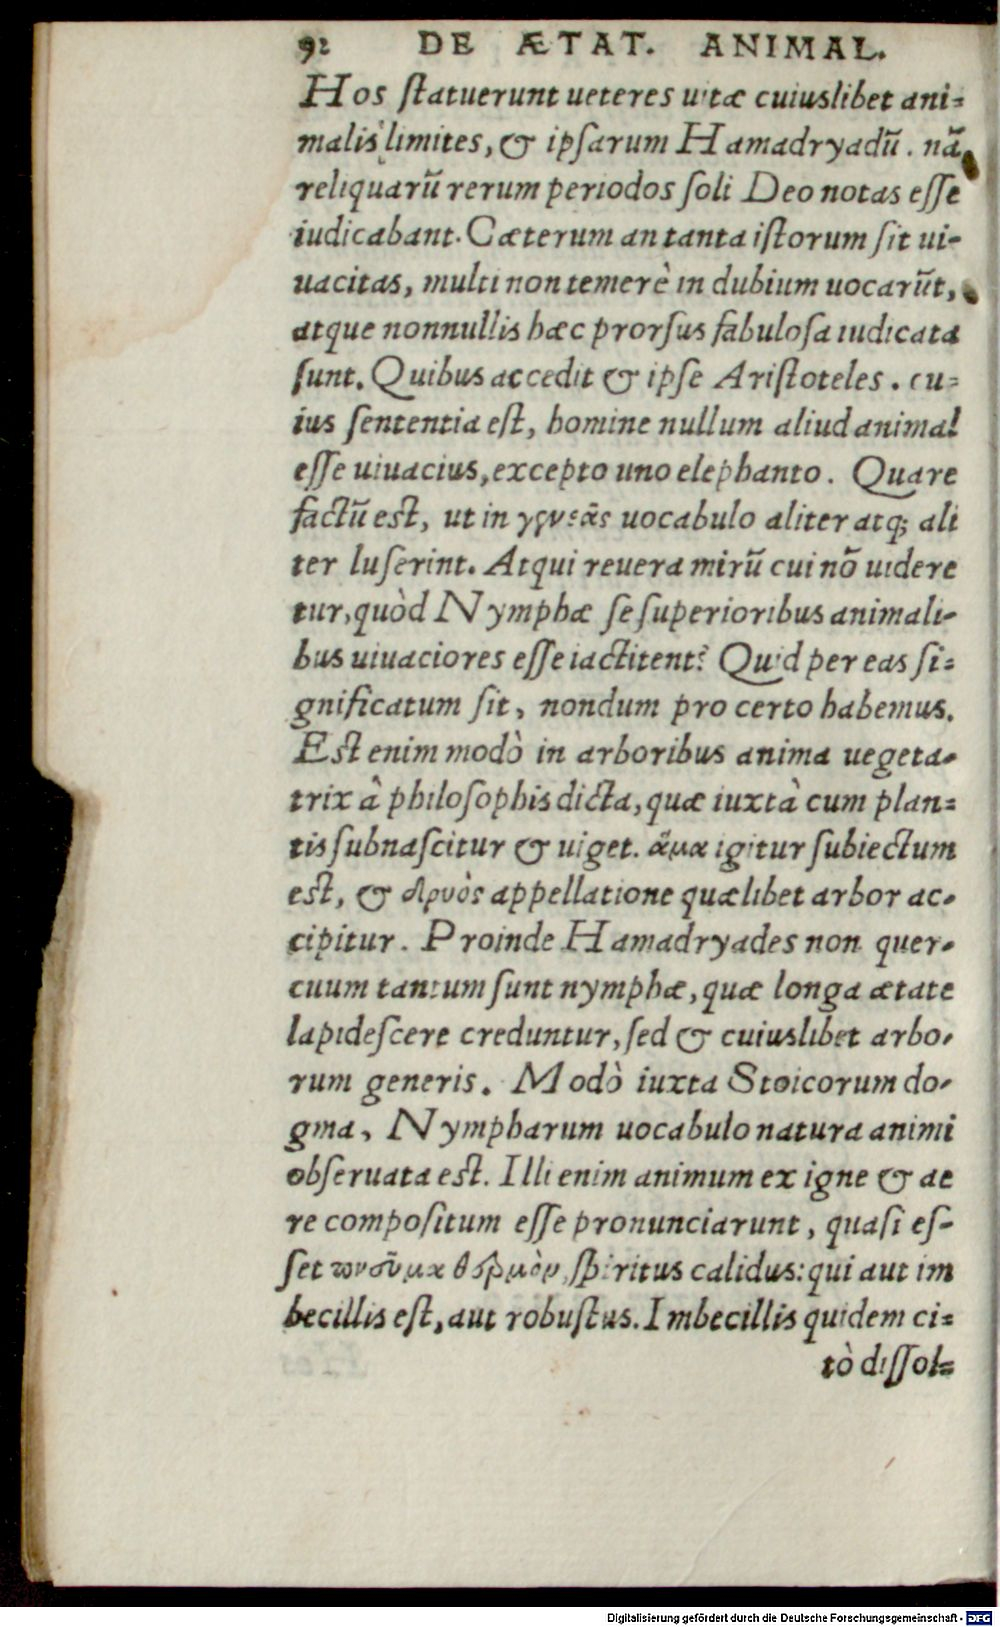 92 DE ÆTAT. ANIMAL.
Hos ſtatuerunt ueteres uitæ cuiuslibet ani-
malis limites, & ipſarum Hamadryadũ. nã
reliquarũ rerum periodos ſoli Deo notas eſſe
iudicabant. Cæterum an tanta iſtorum ſit ui-
uacitas, multi non temerè in dubium uocarũt,
atque nonnullis hæc prorſus fabuloſa iudicata
ſunt. Quibus accedit & ipſe Ariſtoteles. cu-
ius ſententia eſt, homine nullum aliud animal
eſſe uiuacius, excepto uno elephanto. Quare
factũ est, ut in γενεᾶς uocabulo aliter atq; ali
ter luſerint. Atqui reuera mirũ cui nõ uidere
tur, quòd Nymphæ ſe ſuperioribus animali-
bus uiuaciores eſſe iactitent? Quid per eas ſi-
gnificatum ſit, nondum pro certo habemus.
Est enim modò in arboribus anima uegeta-
trix à philoſophis dicta, quæ iuxtà cum plan-
tis ſubnaſcitur & uiget. ἅμα igitur ſubiectum
est, & δρυὸς appellatione quælibet arbor ac-
cipitur. Proinde Hamadryades non quer-
cuum tantum ſunt nymphæ, quæ longa ætate
lapideſcere creduntur, ſed & cuiuslibet arbo-
rum generis. Modò iuxta Stoicorum do-
gma, Nympharum uocabulo natura animi
obſeruata est. Illi enim animum ex igne & ae
re compoſitum eſſe pronunciarunt, quaſi eſ-
ſet πνεῦμα θερμὸν, ſpiritus calidus: qui aut im
becillis eſt, aut robuſtus. Imbecillis quidem ci-
tò diſſol-
Digitalisierung gefördert durch die Deutsche Forschungsgemeinschaft - DFG